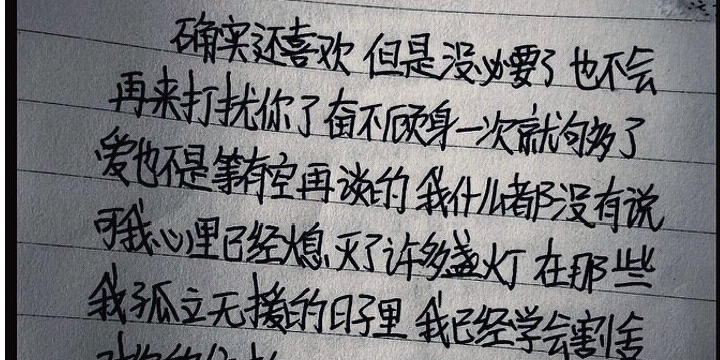 确实还喜欢 但是没必要了 也不会
再来打扰你了 奋不顾身一次就够了
爱也不是等有空再谈的 我什么都没有说
可我心里已经熄灭了许多盏灯 在那些
我孤立无援的日子里 我已经学会割舍